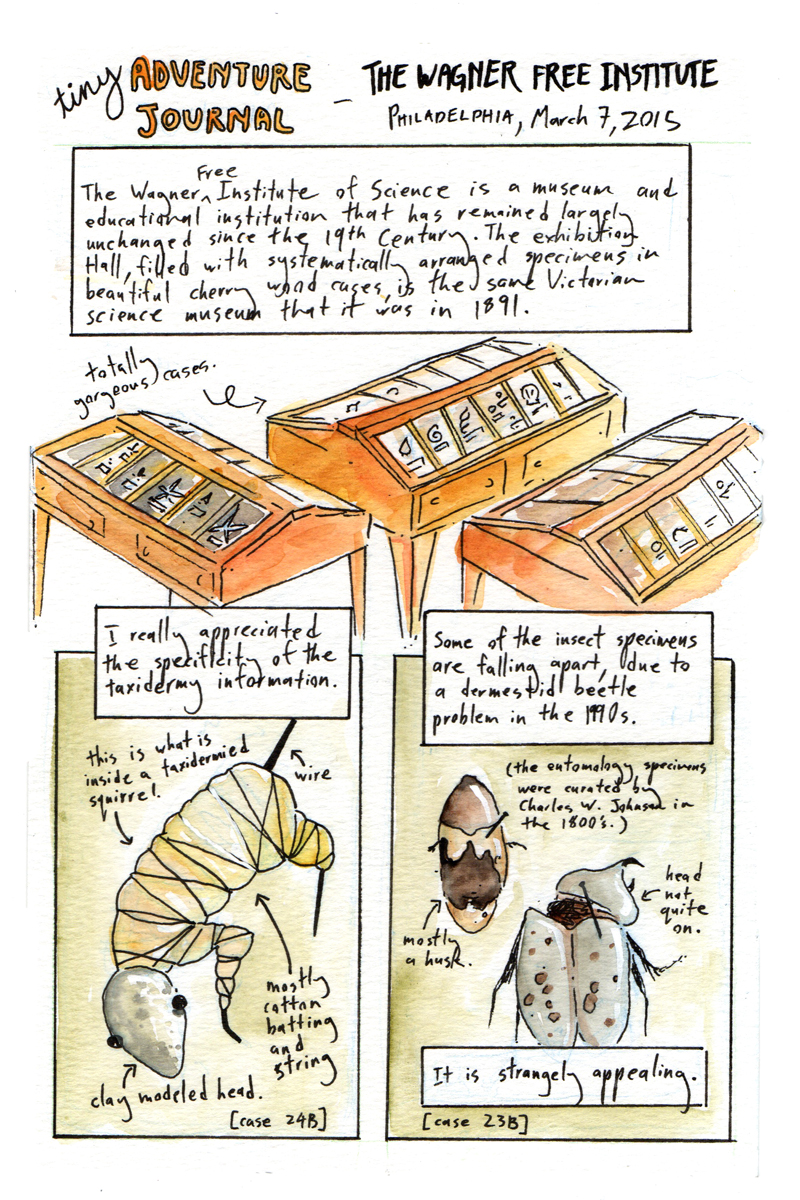 tiny ADVENTURE
JOURNAL
- THE WAGNER FREE INSTITUTE
PHILADELPHIA, March 7, 2015
Free
The Wagner ^ Institute of Science is a museum and
educational institution that has remained largely
unchanged since the 19th Century. The exhibition
Hall, filled with systematically arranged specimens in
beautiful cherry wood cases, is the same Victorian
science museum that it was in 1891.
totally
gorgeous cases.
I really appreciated
the specificity of the
taxidermy information.
this is what is
inside a taxidermied
squirrel.
wire
mostly
cotton
batting
and
string
clay modeled head.
[case 24B]
Some of the insect specimens
are falling apart, due to
a dermestid beetle
problem in the 1990s.
(the entomology specimens
were curated by
Charles W. Johnson in
the 1800's.)
head
not
quite
on.
mostly
a husk.
It is strangely appealing.
[case 23B]